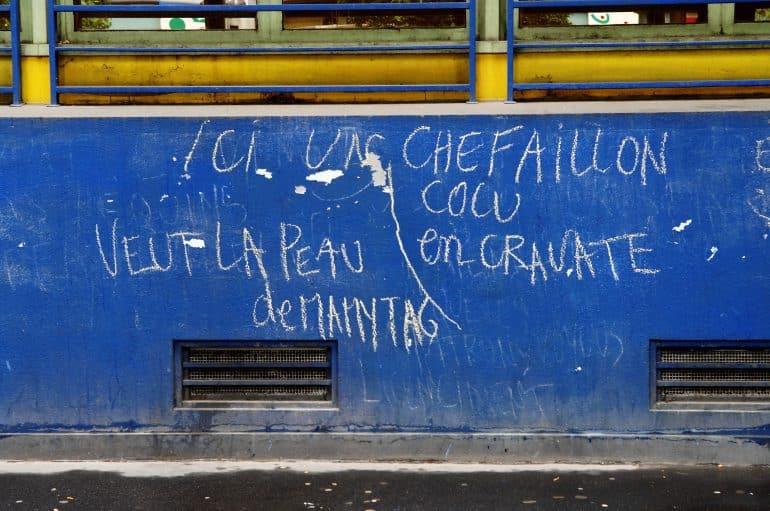 ICI UN CHEFAILLON
COCU
VEUT LA PEAU en CRAVATE
de MAINTAG